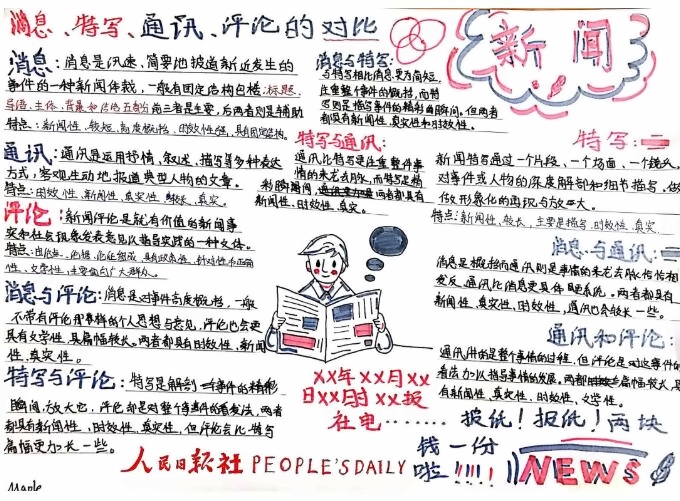 消息、特写、通讯、评论的对比
消息：消息是迅速、简要地报道新近发生的
事件的一种新闻体裁，一般有固定结构包括：标题、
导语、主体、背景和结语五部分 前三者是主要，后两者则是辅助
特点：新闻性、较短、高度概括、时效性强、具有固定结构。
通讯：通讯是运用抒情、叙述、描写等多种表达
方式，客观生动地报道典型人物的文章。
特点：时效性、新闻性、真实性、较长、真实。
评论：新闻评论是就有价值的新闻事
实和社会现象发表意见以指导实践的一种文体。
性、文学性、主要面向广大群众。
消息与评论：消息是对事件高度概括，一般
不带有评论那样的个人思想与意见，评论也会更
具有文学性，具篇幅较长。两者都具有时效性、新闻
性、真实性。
特写与评论：特写是解剖事件的精彩
瞬间，放大它，评论却是对整个事件的看发法，两者
都具有新闻性、时效性、真实性，但评论会比特写
篇幅更加长一些。
消息与特写：
与特写相比消息更为简短，
注重整个事件的概括，而特
写则是描写事件的精彩瞬间。但两者
都具有新闻性、真实性和时效性。
特写与通讯：
通讯比特写更注重整件事
情的来龙去脉，而特写是精
彩瞬间，两者都具有
新闻性、时效性、真实。
新闻
特写：
新闻特写通过一个片段、一个场面、一个镜头，
对事件或人物的深度解剖和细节描写，做
做形象化的再现与放大。
特点：新闻性、较长、主要是描写、时效性、真实
消息与通讯：
消息是概括而通讯则是事情的来龙去脉
新闻性、真实性、时效性，通讯也会较长一些。
通讯和评论：
通讯讲的是整个事情的过程，但评论是对这事件的
看法加以指导事情的发展，两都篇幅较大，具
有新闻性、真实性、时效性、文学性。
XX年XX月XX
日XX时XX报
社电……
报纸！报纸！两块
钱一份
啦!!!!!
NEWS
人民日报社 PEOPLE'S DAILY
Maple